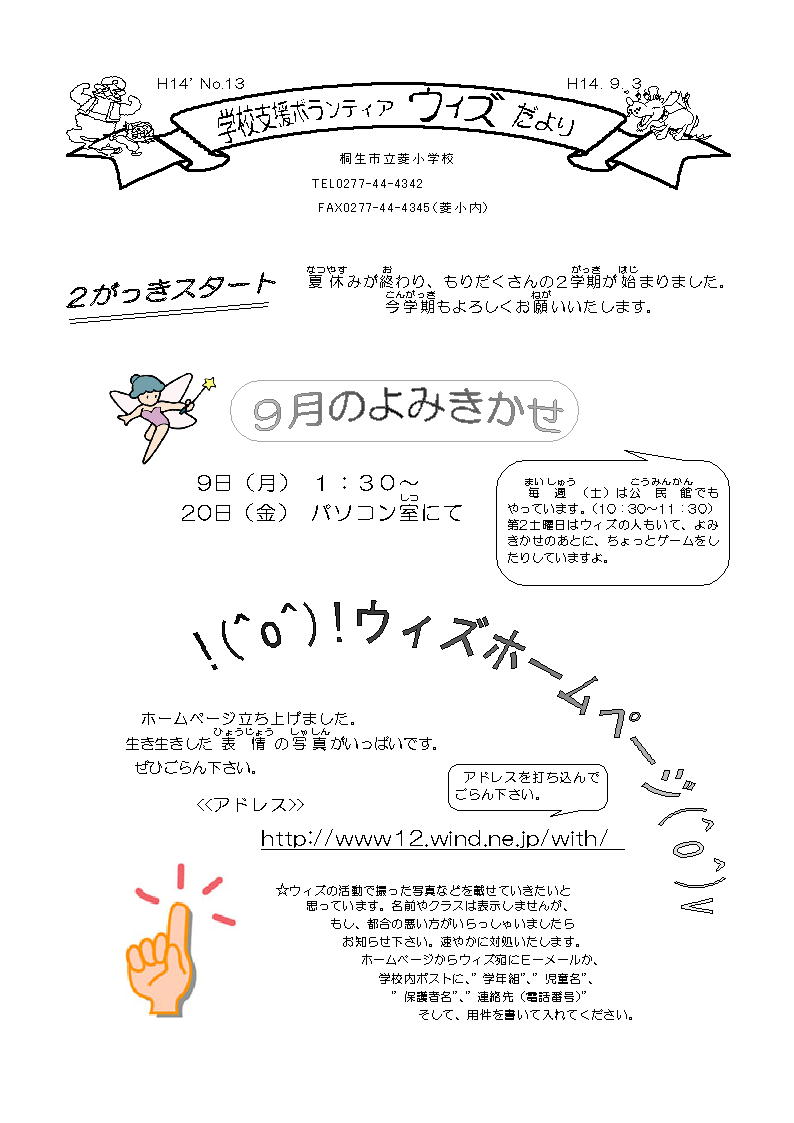 H14’ No.13
H14. 9. 3
学校支援ボランティア ウィズ だより
桐生市立菱小学校
TEL0277-44-4342
FAX0277-44-4345(菱小内)
2がっきスタート
なつやす お がっき はじ
夏休みが終わり、もりだくさんの２学期が始まりました。
こんがっき ねが
今学期もよろしくお願いいたします。
9月のよみきかせ
9日（月） １：３０～
しつ
20日（金） パソコン室にて
まいしゅう こうみんかん
毎週（土）は公民館でも
やっています。（10：30～11：30）
第2土曜日はウィズの人もいて、よみ
きかせのあとに、ちょっとゲームをし
たりしていますよ。
！(^o^)！ウィズホームページ(^o^)v
ホームページ立ち上げました。
ひょうじょう しゃしん
生き生きした表情の写真がいっぱいです。
ぜひごらん下さい。
アドレスを打ち込んで
ごらん下さい。
<<アドレス>>
http://www12.wind.ne.jp/with/
☆ウィズの活動で撮った写真などを載せていきたいと
思っています。名前やクラスは表示しませんが、
もし、都合の悪い方がいらっしゃいましたら
お知らせ下さい。速やかに対処いたします。
ホームページからウィズ宛にＥーメールか、
学校内ポストに、”学年組”、”児童名”、
”保護者名”、”連絡先（電話番号）”
そして、用件を書いて入れてください。